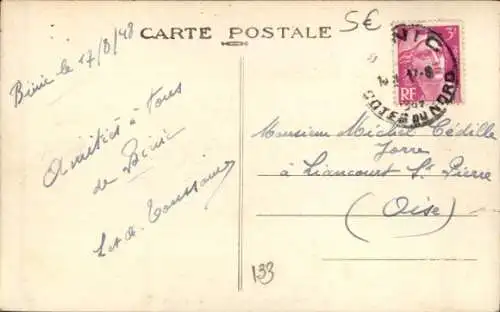 5€
CARTE POSTALE
BINIC
3F
17-8
RF
COTES DU NORD
Binic le 17/8/48
Amitiés à tous
de Binic
L et A. Toussaint
Monsieur Michel Cédille
à Liancourt St Pierre
(Oise)
133